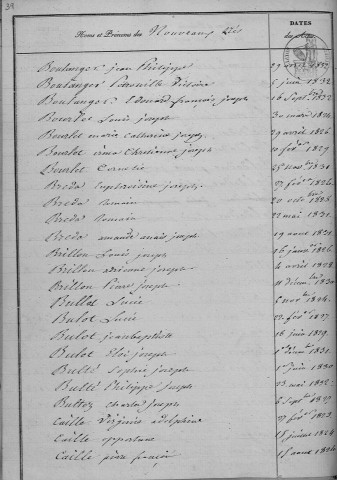 Noms et Prénoms des Nouveaux Nés
DATES
Boulanger jean philippe 29 avril 1827
Boulanger Camille Victoire 5 juin 1832
Boulanger Edouard françois joseph 16 Sept 1832
Bourlet Louis joseph 30 mai 1824
Bourlet marie catherine joseph 29 avril 1826
Bourlet irma Chretienne joseph 10 fev 1829
Bourlet Cornelie 25 nov 1831
Breda Euphrosine joseph 27 fev 1826
Breda Romain 20 oct 1826
Breda Romain 22 mai 1831
Breda amande anais joseph 19 aout 1831
Brillon Louis joseph 16 janv 1826
Brillon adrienne joseph 4 avril 1828
Brillon Pierre joseph 11 Decem 1830
Bullot Lucie 6 nov 1824
Bulot Lucie 22 fev 1827
Bulot jean baptiste 16 juin 1829
Bulot Eloi joseph 1831
Bulté Sophie joseph 1er juin 1830
Bulté Philippe joseph 23 mai 1832
Bultez Charles joseph 6 Sept 1832
Caille Virginie adelphine 27 fev 1823
Caille opportune 15 1824
Caille pierre françois 15 aout 1826